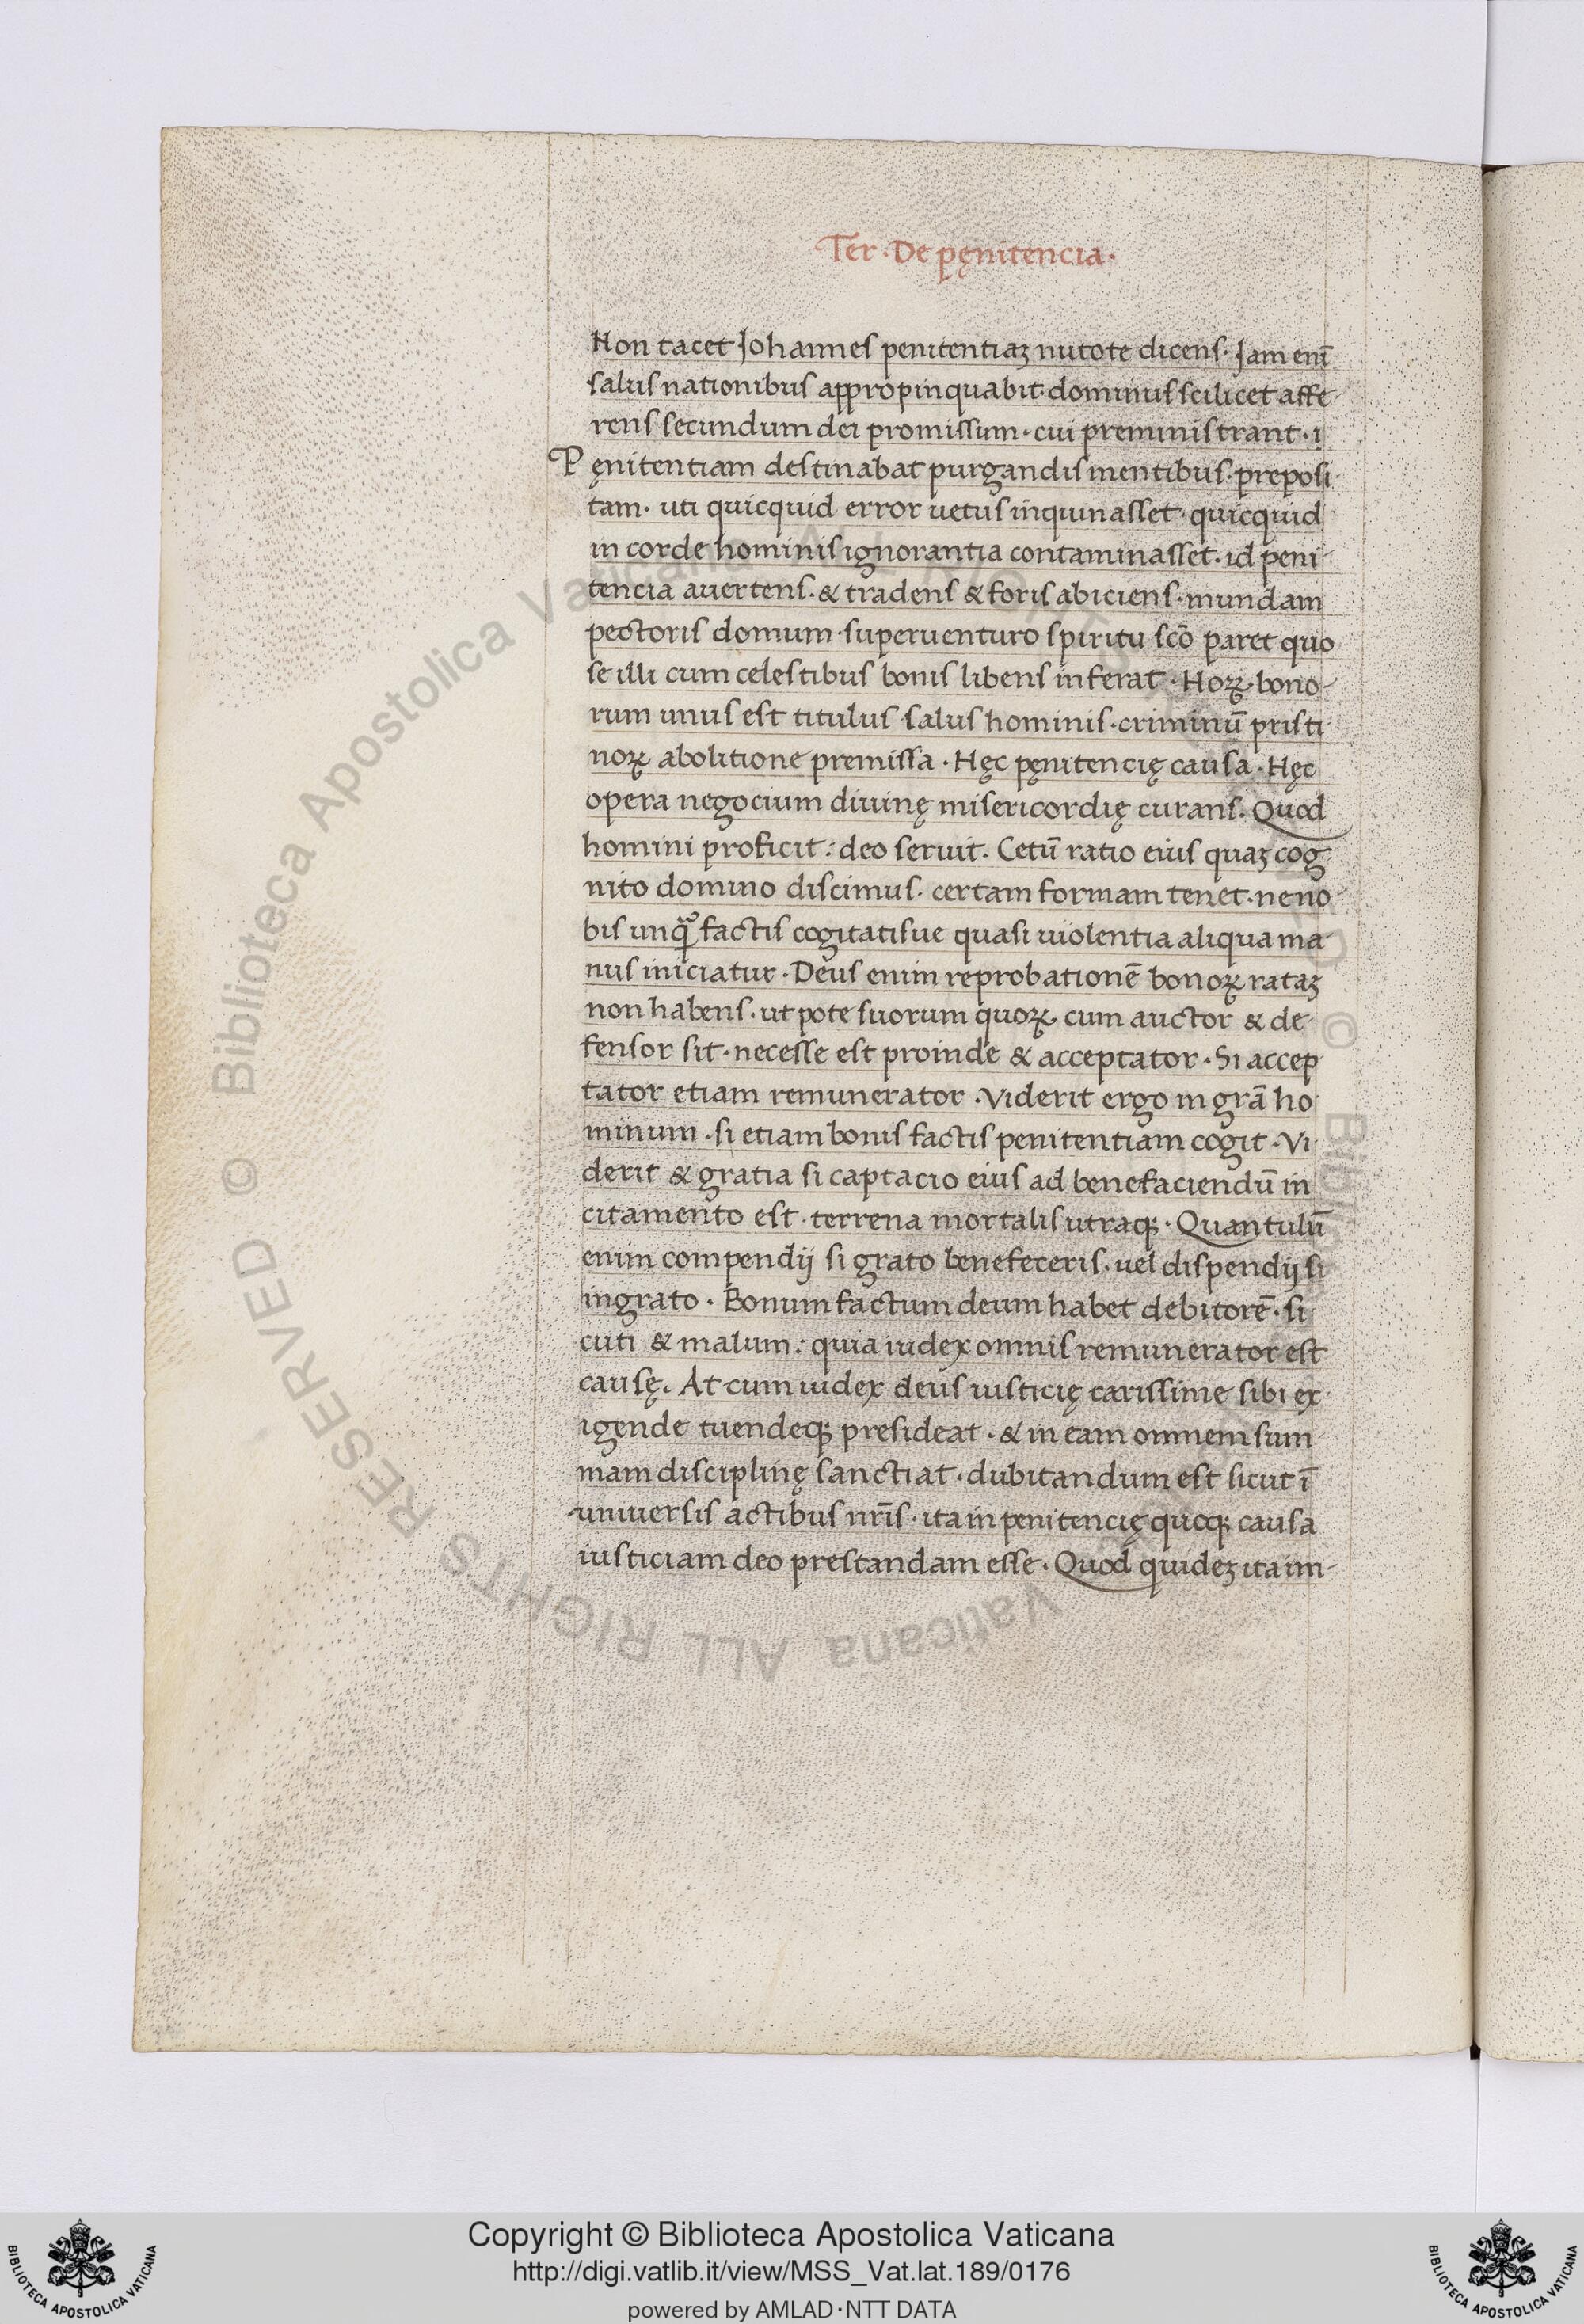 Ter · De pęnitencia ·
Non tacet Johannes penitentiaꝫ nutote dicens · Jam enī
salus nationibus appropinquabit · dominus scilicet affe
rens secundum dei promissum · cui preministrant · i
Pęnitentiam destinabat purgandis mentibus · preposi
tam · uti quicquid error uetus inquinasset · quicquid
in corde hominis ignorantia contaminasset · id peni
tencia auertens · & tradens & foris abiciens · mundam
pectoris domum · superuenturo spiritu scō paret quo
se illi cum celestibus bonis libens inferat · Hoꝝ · bono
rum unus est titulus · salus hominis · criminū pristi
noꝝ abolitione premissa · Hęc pęnitencię causa · Hęc
opera negocium diuinę misericordię curans · Quod
homini proficit : deo seruit · Cetū ratio eius quaꝫ cog
nito domino discimus · certam formam tenet · ne no
bis unqꝫ factis cogitatisue quasi uiolentia aliqua ma
nus iniciatur · Deus enim reprobationē bonoꝝ rataꝫ
non habens · ut pote suorum quoꝝ cum auctor & de
fensor sit · necesse est proinde & acceptator · Si accep
tator etiam remunerator · Viderit ergo in grā ho
minum · si etiam bonis factis penitentiam cogit · Vi
derit & gratia si captacio eius ad benefaciendū in
citamento est · terrena mortalis utraqꝫ · Quantulū
enim compendij si grato benefeceris · uel dispendij si
ingrato · Bonum factum deum habet debitorē · si
cuti & malum : quia iudex omnis remunerator est
causę · At cum iudex deus iusticię carissime sibi ex
igende tuendeqꝫ presideat · & in eam omnem sum
mam disciplinę sanctiat · dubitandum est sicut ī
uniuersis actibus nr̄is · ita in penitencię quoqꝫ causa
iusticiam deo prestandam esse · Quod quideꝫ ita im
Biblioteca Apostolica Vaticana ALL RIGHTS RESERVED ©
Copyright © Biblioteca Apostolica Vaticana
http://digi.vatlib.it/view/MSS_Vat.lat.189/0176
powered by AMLAD·NTT DATA
BIBLIOTECA APOSTOLICA VATICANA
BIBLIOTECA APOSTOLICA VATICANA